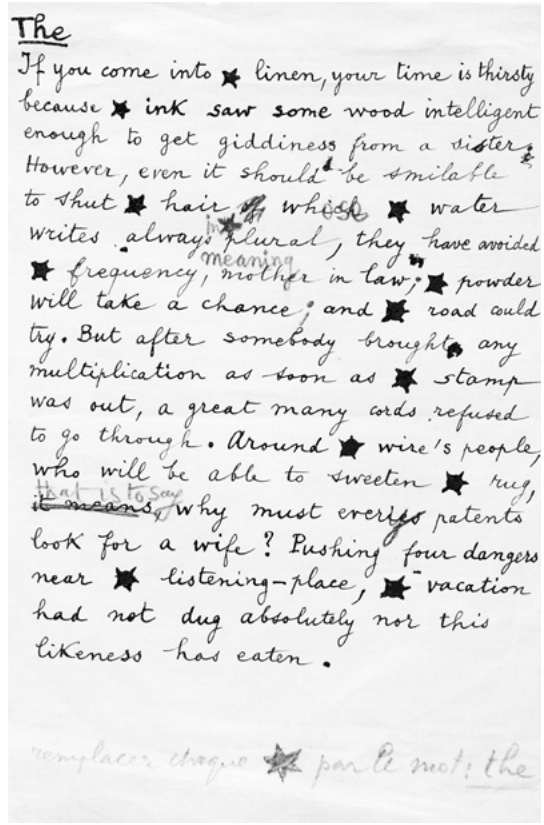 The
If you come into ★ linen, your time is thirsty
because ★ ink saw some wood intelligent
enough to get giddiness from a sister.
However, even it should be smilable
to shut ★ hair whose ★ water
writes always in ★ plural, they have avoided
meaning
★ frequency, mother in law; ★ powder
will take a chance; and ★ road could
try. But after somebody brought any
multiplication as soon as ★ stamp
was out, a great many cords refused
to go through. Around ★ wire's people,
who will be able to sweeten ★ rug,
that is to say
it means, why must every patents
look for a wife? Pushing four dangers
near ★ listening-place, ★ vacation
had not dug absolutely nor this
likeness has eaten.
remplacer chaque ★ par le mot: the